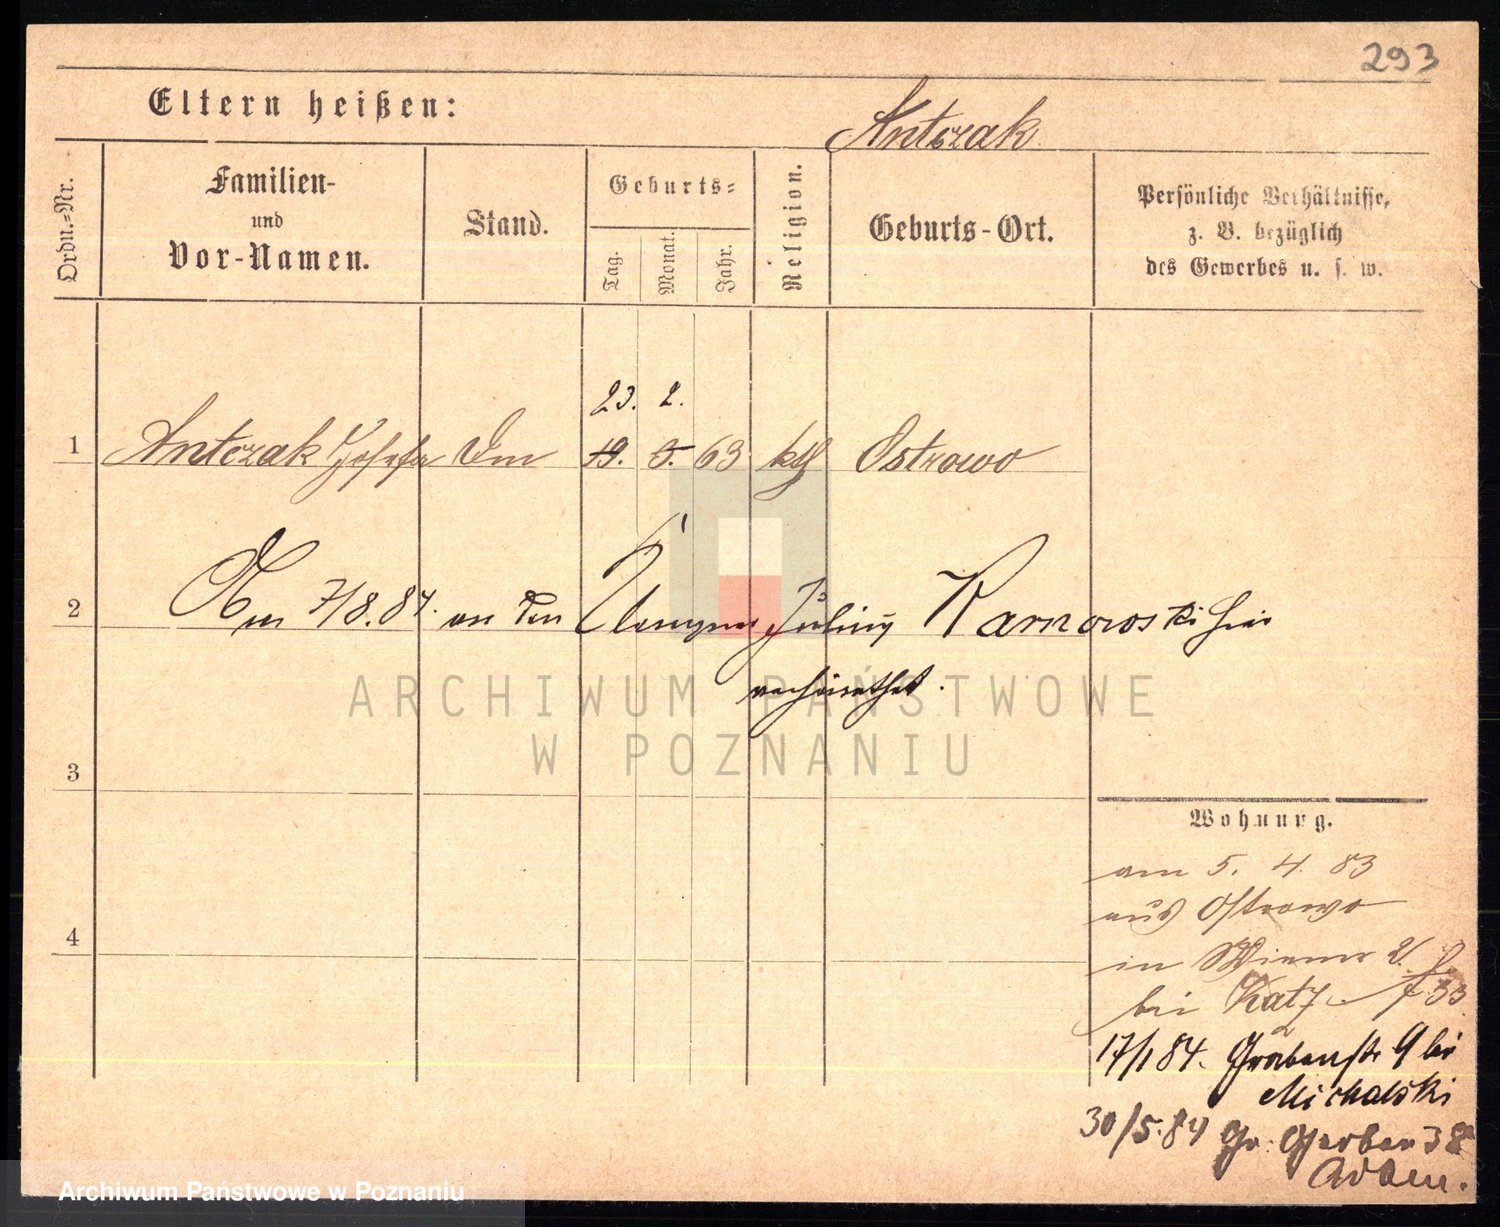 293
Eltern heißen:
Antczak
Ordn.=Nr.
Familien-
und
Vor-Namen.
Stand.
Geburts=
Tag.
Monat.
Jahr.
Religion.
Geburts-Ort.
Persönliche Verhältnisse,
z. B. bezüglich
des Gewerbes u. s. w.
23. 2.
1 Antczak Josefa 19. 5. 63 kth Ostrowo
2 Am 7/8.84. an den Julius Karnowski hier
verheirathet.
ARCHIWUM PAŃSTWOWE
W POZNANIU
3
Wohnung.
am 5. 4. 83
aus Ostrowo
4
in Wiener
bei Katz
17/1 84. Grabenstr 9 bei
Michalski
30/5.84 Gr. Gerber 38
Adam.
Archiwum Państwowe w Poznaniu